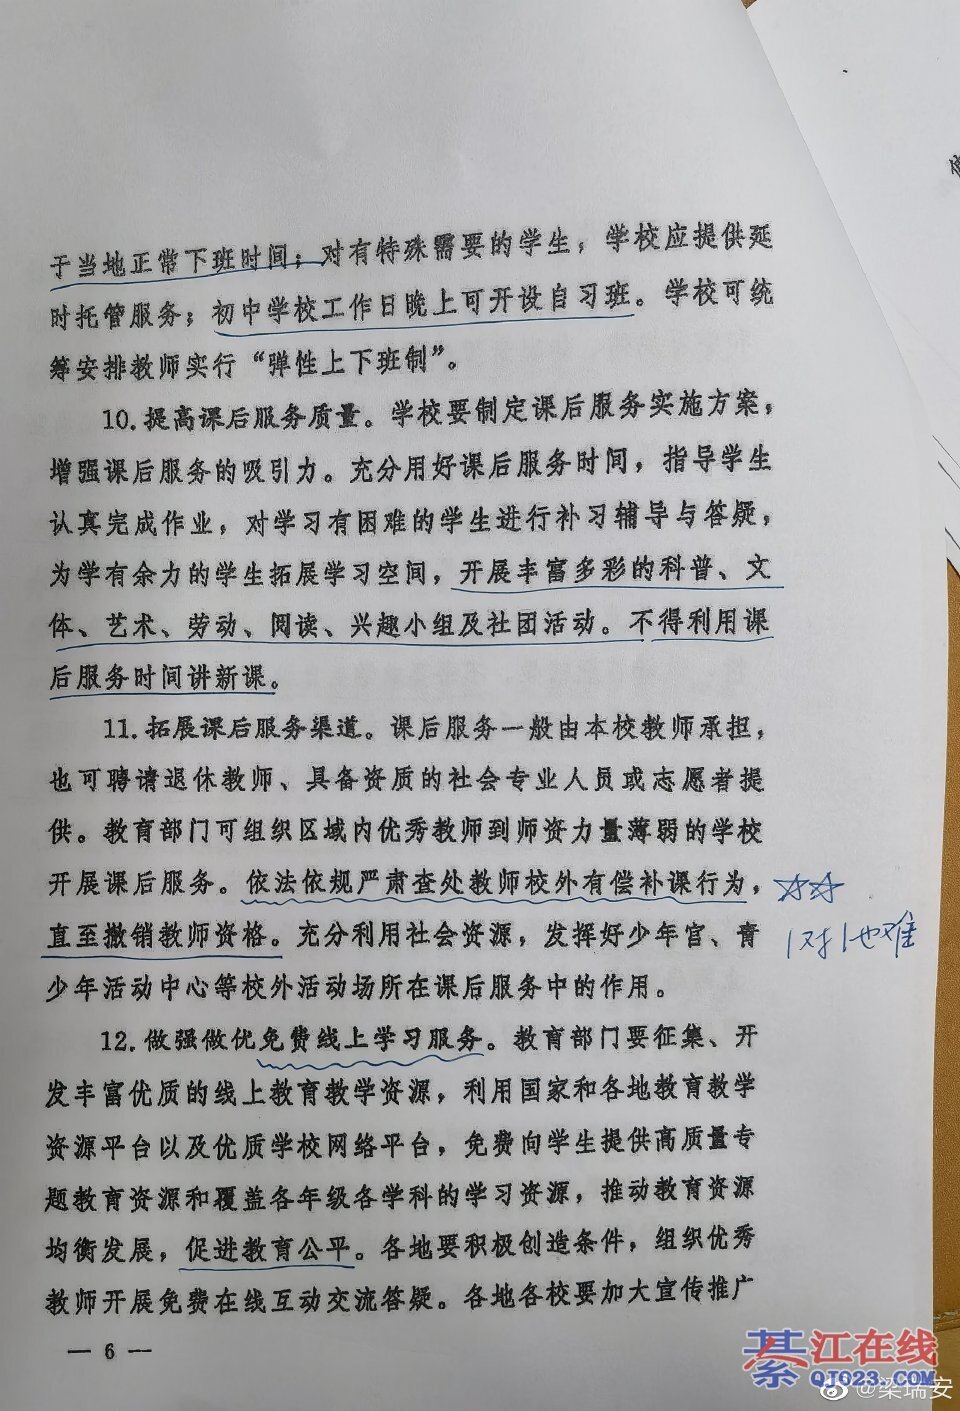 于当地正常下班时间；对有特殊需要的学生，学校应提供延
时托管服务；初中学校工作日晚上可开设自习班。学校可统
筹安排教师实行“弹性上下班制”。
10.提高课后服务质量。学校要制定课后服务实施方案，
增强课后服务的吸引力。充分用好课后服务时间，指导学生
认真完成作业，对学习有困难的学生进行补习辅导与答疑，
为学有余力的学生拓展学习空间，开展丰富多彩的科普、文
体、艺术、劳动、阅读、兴趣小组及社团活动。不得利用课
后服务时间讲新课。
11.拓展课后服务渠道。课后服务一般由本校教师承担，
也可聘请退休教师、具备资质的社会专业人员或志愿者提
供。教育部门可组织区域内优秀教师到师资力量薄弱的学校
开展课后服务。依法依规严肃查处教师校外有偿补课行为，
直至撤销教师资格。充分利用社会资源，发挥好少年宫、青
少年活动中心等校外活动场所在课后服务中的作用。
12.做强做优免费线上学习服务。教育部门要征集、开
发丰富优质的线上教育教学资源，利用国家和各地教育教学
资源平台以及优质学校网络平台，免费向学生提供高质量专
题教育资源和覆盖各年级各学科的学习资源，推动教育资源
均衡发展，促进教育公平。各地要积极创造条件，组织优秀
教师开展免费在线互动交流答疑。各地各校要加大宣传推广
— 6 —
綦江在线
QJ023.COM
@梁瑞安